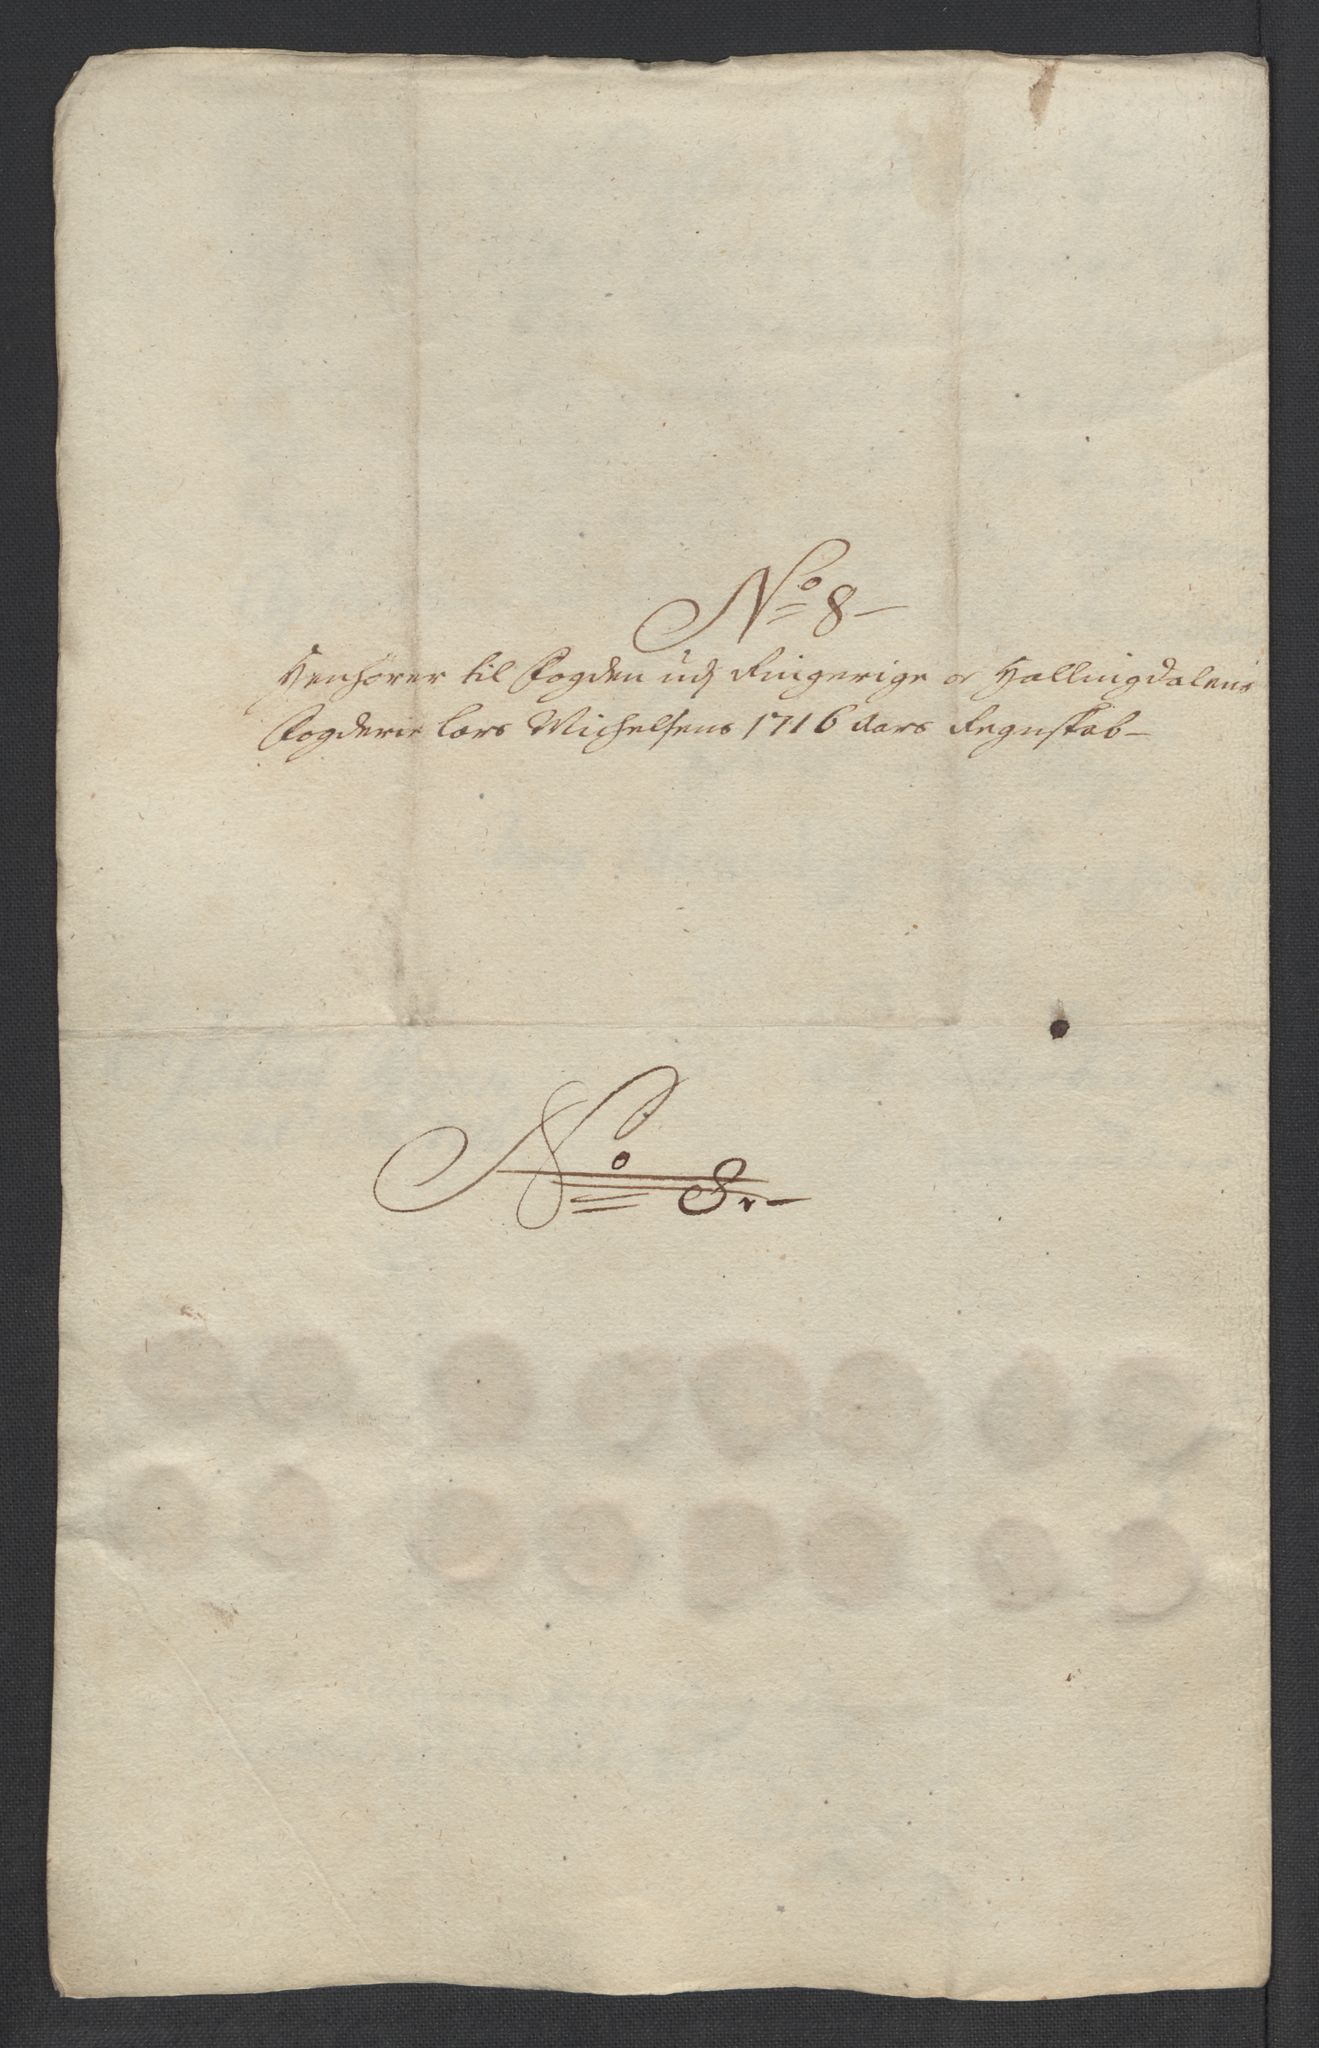 No 8
Henhører til Fogden udj Ringerige og Hallingdalens
Fogderie Lars Michelsens 1716 Aars Regnskab
No 8